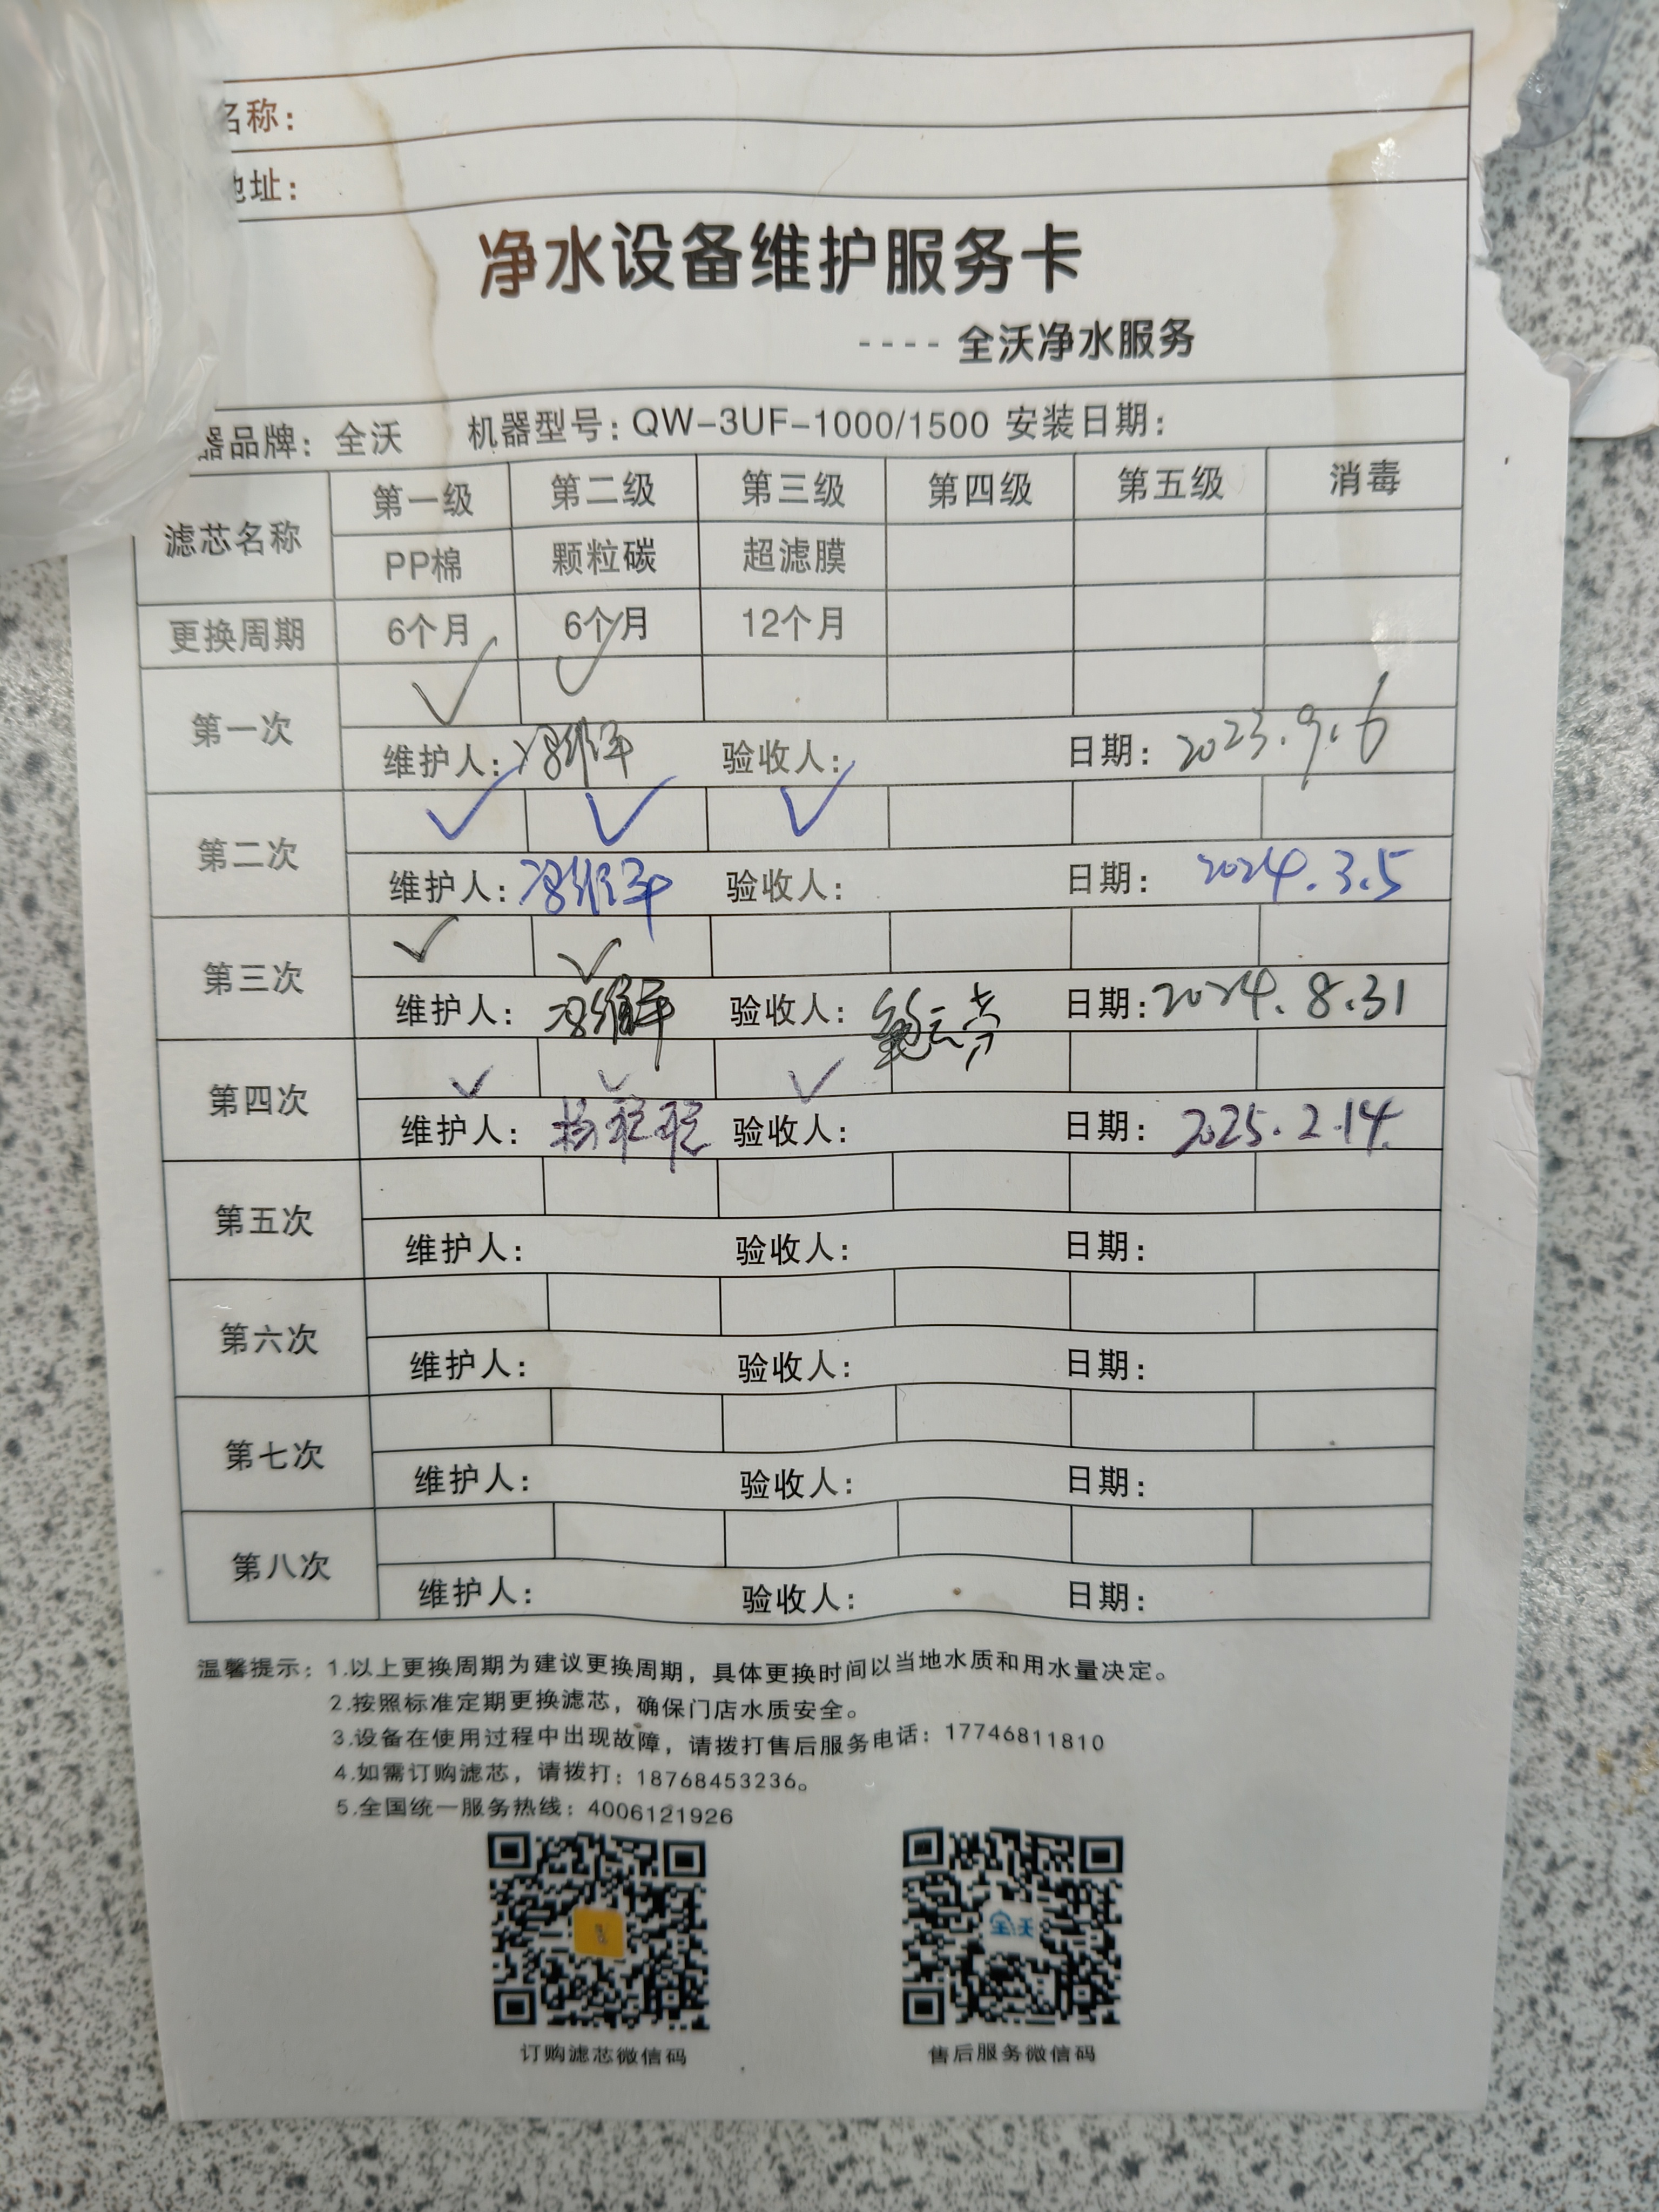 名称：
地址：
净水设备维护服务卡
---- 全沃净水服务
器品牌：全沃 机器型号：QW-3UF-1000/1500 安装日期：
滤芯名称 第一级 第二级 第三级 第四级 第五级 消毒
PP棉 颗粒碳 超滤膜
更换周期 6个月 6个月 12个月
第一次 ✓ ✓
维护人： 验收人： 日期：2023.9.6
第二次 ✓ ✓ ✓
维护人： 验收人： 日期：2024.3.5
第三次 ✓ ✓
维护人： 验收人： 日期：2024.8.31
第四次 ✓ ✓ ✓
维护人： 验收人： 日期：2025.2.14.
第五次
维护人： 验收人： 日期：
第六次
维护人： 验收人： 日期：
第七次
维护人： 验收人： 日期：
第八次
维护人： 验收人： 日期：
温馨提示：1.以上更换周期为建议更换周期，具体更换时间以当地水质和用水量决定。
2.按照标准定期更换滤芯，确保门店水质安全。
3.设备在使用过程中出现故障，请拨打售后服务电话：17746811810
4.如需订购滤芯，请拨打：18768453236。
5.全国统一服务热线：4006121926
全沃
订购滤芯微信码 售后服务微信码